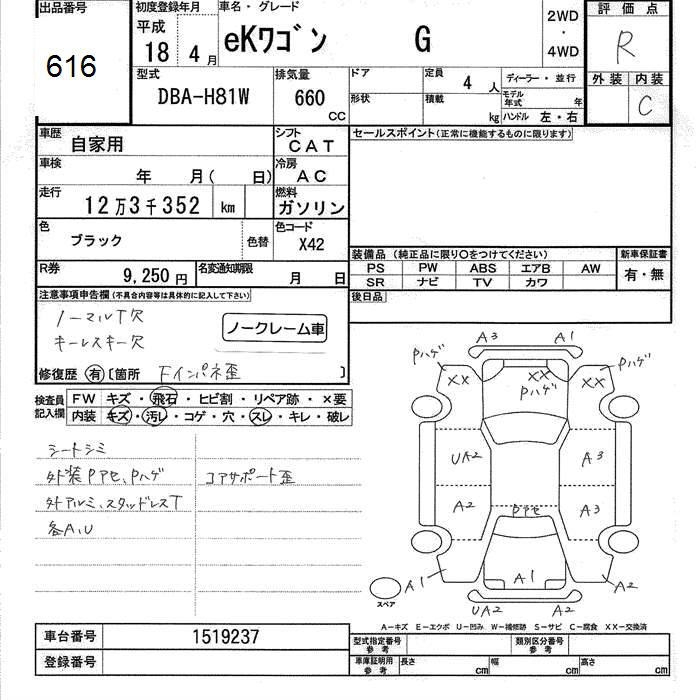 出品番号 初度登録年月 車名・グレード 評価点
616 平成 18 4月 eKワゴン G 2WD・4WD R
外装 内装
C
型式 排気量 ドア 定員 4人 ディーラー・並行
DBA-H81W 660 CC 形状 積載 kg モデル年式 年
ハンドル 左・右
車歴 自家用 シフト CAT セールスポイント(正常に機能するものに限ります)
車検 年 月( 日) 冷房 AC
走行 12万3千352 km 燃料 ガソリン
色 ブラック 色替 色コード X42
装備品 (純正品に限り○をつけてください) 新車保証書
PS PW ABS エアB AW 有・無
SR ナビ TV カワ
R券 9,250円 名変通知期限 月 日
後日品
注意事項申告欄(不具合内容等は具体的に記入して下さい)
ノーマルT欠
キーレスキー欠
ノークレーム車
修復歴 有 〔箇所 Fインパネ歪 〕
検査員記入欄 FW キズ・飛石・ヒビ割・リペア跡・×要
内装 キズ・汚レ・コゲ・穴・スレ・キレ・破レ
シートシミ
外装Pアセ、Pハゲ コアサポート歪
外アルミ、スタッドレスT
各A、U
A3 A1
Pハゲ Pハゲ
XX XX XX
Pハゲ
UA2 A3
A2 A3
Pアセ
A1 A1 A2
UA2 A2
スペア
A―キズ E―エクボ U―凹み W―補修跡 S―サビ C―腐食 XX―交換済
車台番号 1519237
登録番号
型式指定番号 参考 類別区分番号 参考
車庫証明用 参考 長さ cm 幅 cm 高さ cm